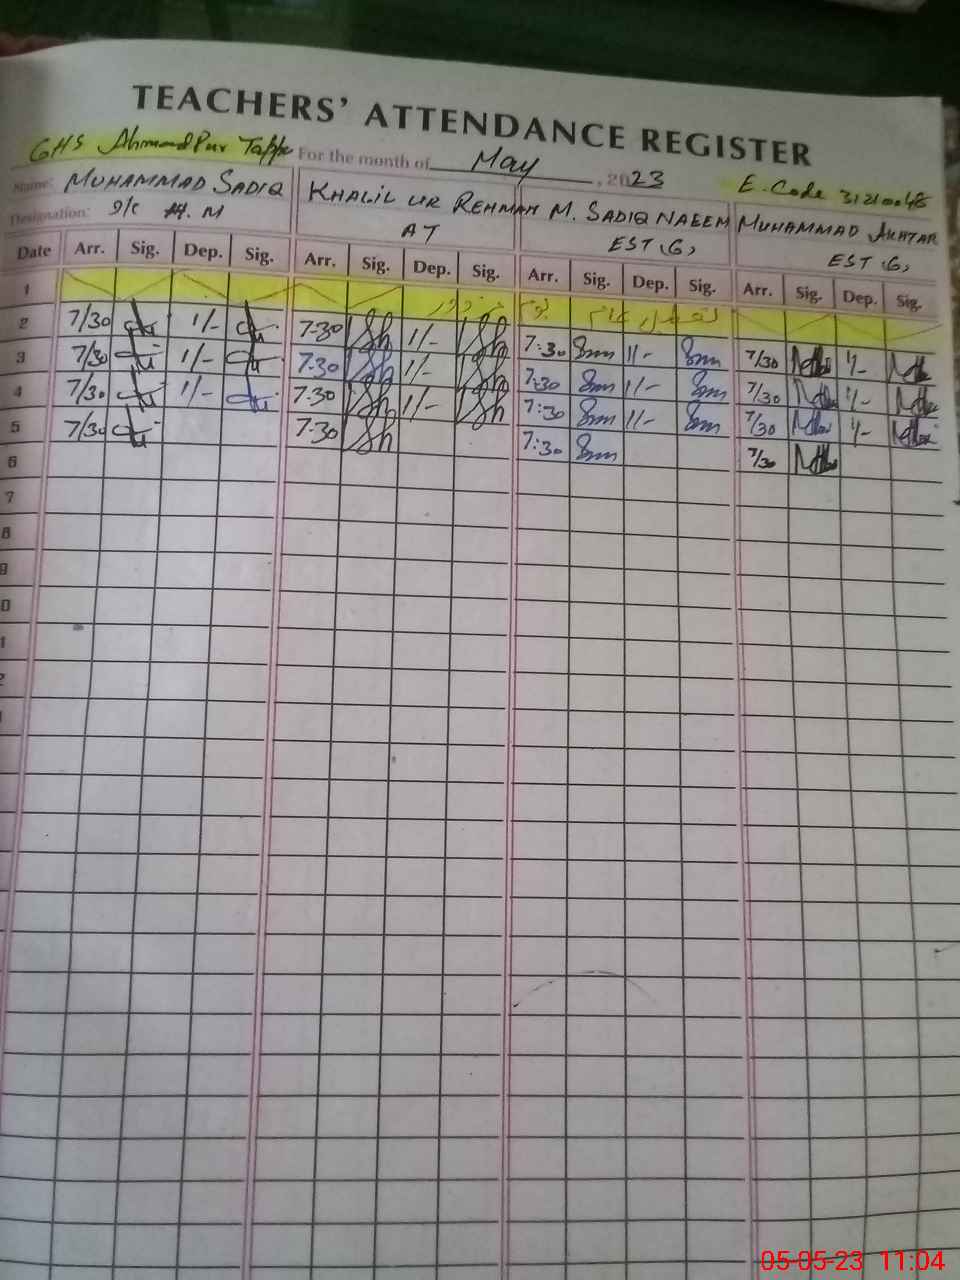 TEACHERS' ATTENDANCE REGISTER
GHS Ahmad Pur For the month of May, 2023 E. Code
Name: MUHAMMAD SADIQ KHALIL UR REHMAN M. SADIQ NAEEM MUHAMMAD AKHTAR
Designation: I/C H. M AT EST (G) EST (G)
Date Arr. Sig. Dep. Sig. Arr. Sig. Dep. Sig. Arr. Sig. Dep. Sig. Arr. Sig. Dep. Sig.
1 یوم
2 7/30 1/- 7-30 1/- 7:30 1/- 7/30 1/-
3 7/30 1/- 7-30 1/- 7:30 1/- 7/30 1/-
4 7/30 1/- 7-30 1/- 7:30 1/- 7/30 1/-
5 7/30 7-30 7:30 7/30
6
7
8
9
0
1
05-05-23 11:04